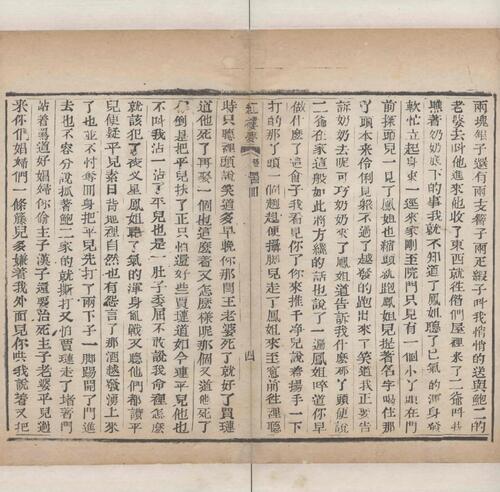 兩塊銀子還有兩支簪子兩疋緞子呌我悄悄的送與鮑二的
老婆去呌他進來他收了東西就往偺們屋裡來了二爺呌我
瞧著奶奶底下的事我就不知道了鳳姐聽了已氣的渾身發
軟忙立起身來一逕來家剛至院門只見有一個小丫頭在門
前探頭兒一見了鳳姐也縮頭就跑鳳姐兒提著名字喝住那
丫頭本來伶俐見躲不過了越發的跑出來了笑道我正要告
訴奶奶去呢可巧奶奶來了鳳姐道告訴我什麽那丫頭便說
二爺在家這般如此將方纔的話也說了一遍鳳姐啐道你早
做什麽了這會子我看見你了你來推干凈兒說著揚手一下
打的那丫頭一個趔趄便攝脚兒走了鳳姐來至窓前往裡聽
紅樓夢 回 四
時只聽裡頭說笑道多早晚你那閻王老婆死了就好了賈璉
道他死了再娶一個也這麽着又怎麽樣呢那個又道他死了
你倒是把平兒扶了正只怕還好些賈璉道如今連平兒他也
不呌我沾一沾了平兒也是一肚子委屈不敢說我命裡怎麽
就該犯了夜叉星鳳姐聽了氣的渾身亂戰又聽他們都讚平
兒便疑平兒素日背地裡自然也有怨言了那酒越發湧上來
了也並不忖奪回身把平兒先打了兩下子一脚踢開了門進
去也不容分說抓著鮑二家的就撕打又怕賈璉走了堵著門
站着罵道好娼婦你偷主子漢子還要治死主子老婆平兒過
來你們娼婦們一條藤兒多嫌着我外面兒你哄我說着又把